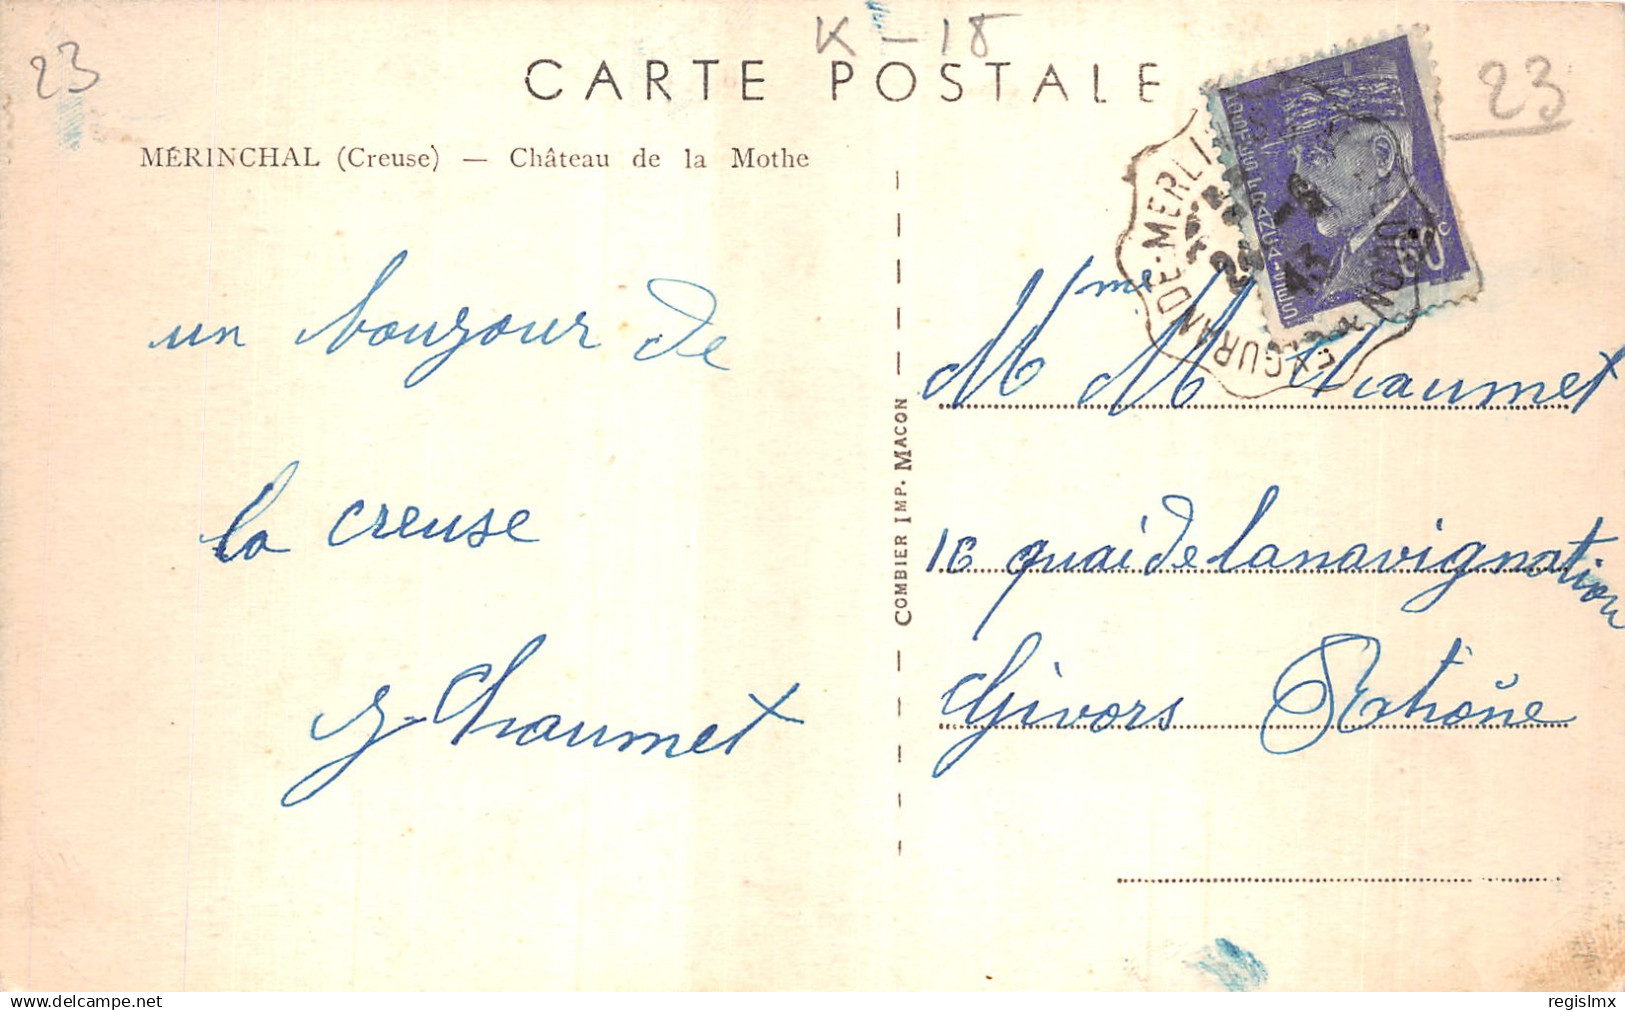 23
K-18
CARTE POSTALE
23
MÉRINCHAL (Creuse) — Château de la Mothe
un bonjour de
la creuse
y-Chaumet
COMBIER IMP. MACON
EYGURANDE-MERLI
60c
Mme M Chaumet
16 quai de la navignation
Givors Rhône
www.delcampe.net
regislmx